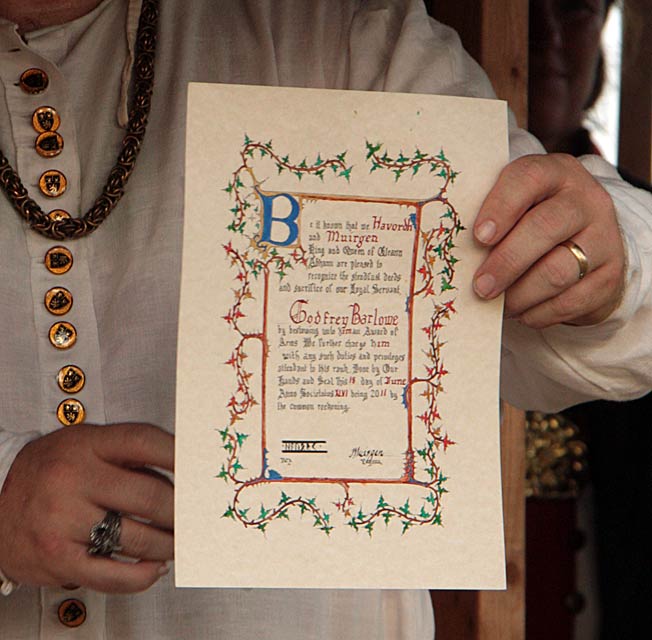 Be it known that we Havordh
and Muirgen
King and Queen of Gleann
Abhann are pleased to
recognize the steadfast deeds
and sacrifice of our Loyal Servant,
Godfrey Barlowe
by bestowing unto him an Award of
Arms We further charge him
with any such duties and privileges
attendant to this rank. Done by Our
Hands and Seal This 18 day of June
Anno Societatus XLVI being 2011 by
the common reckoning.
Rex
Muirgen
Regina